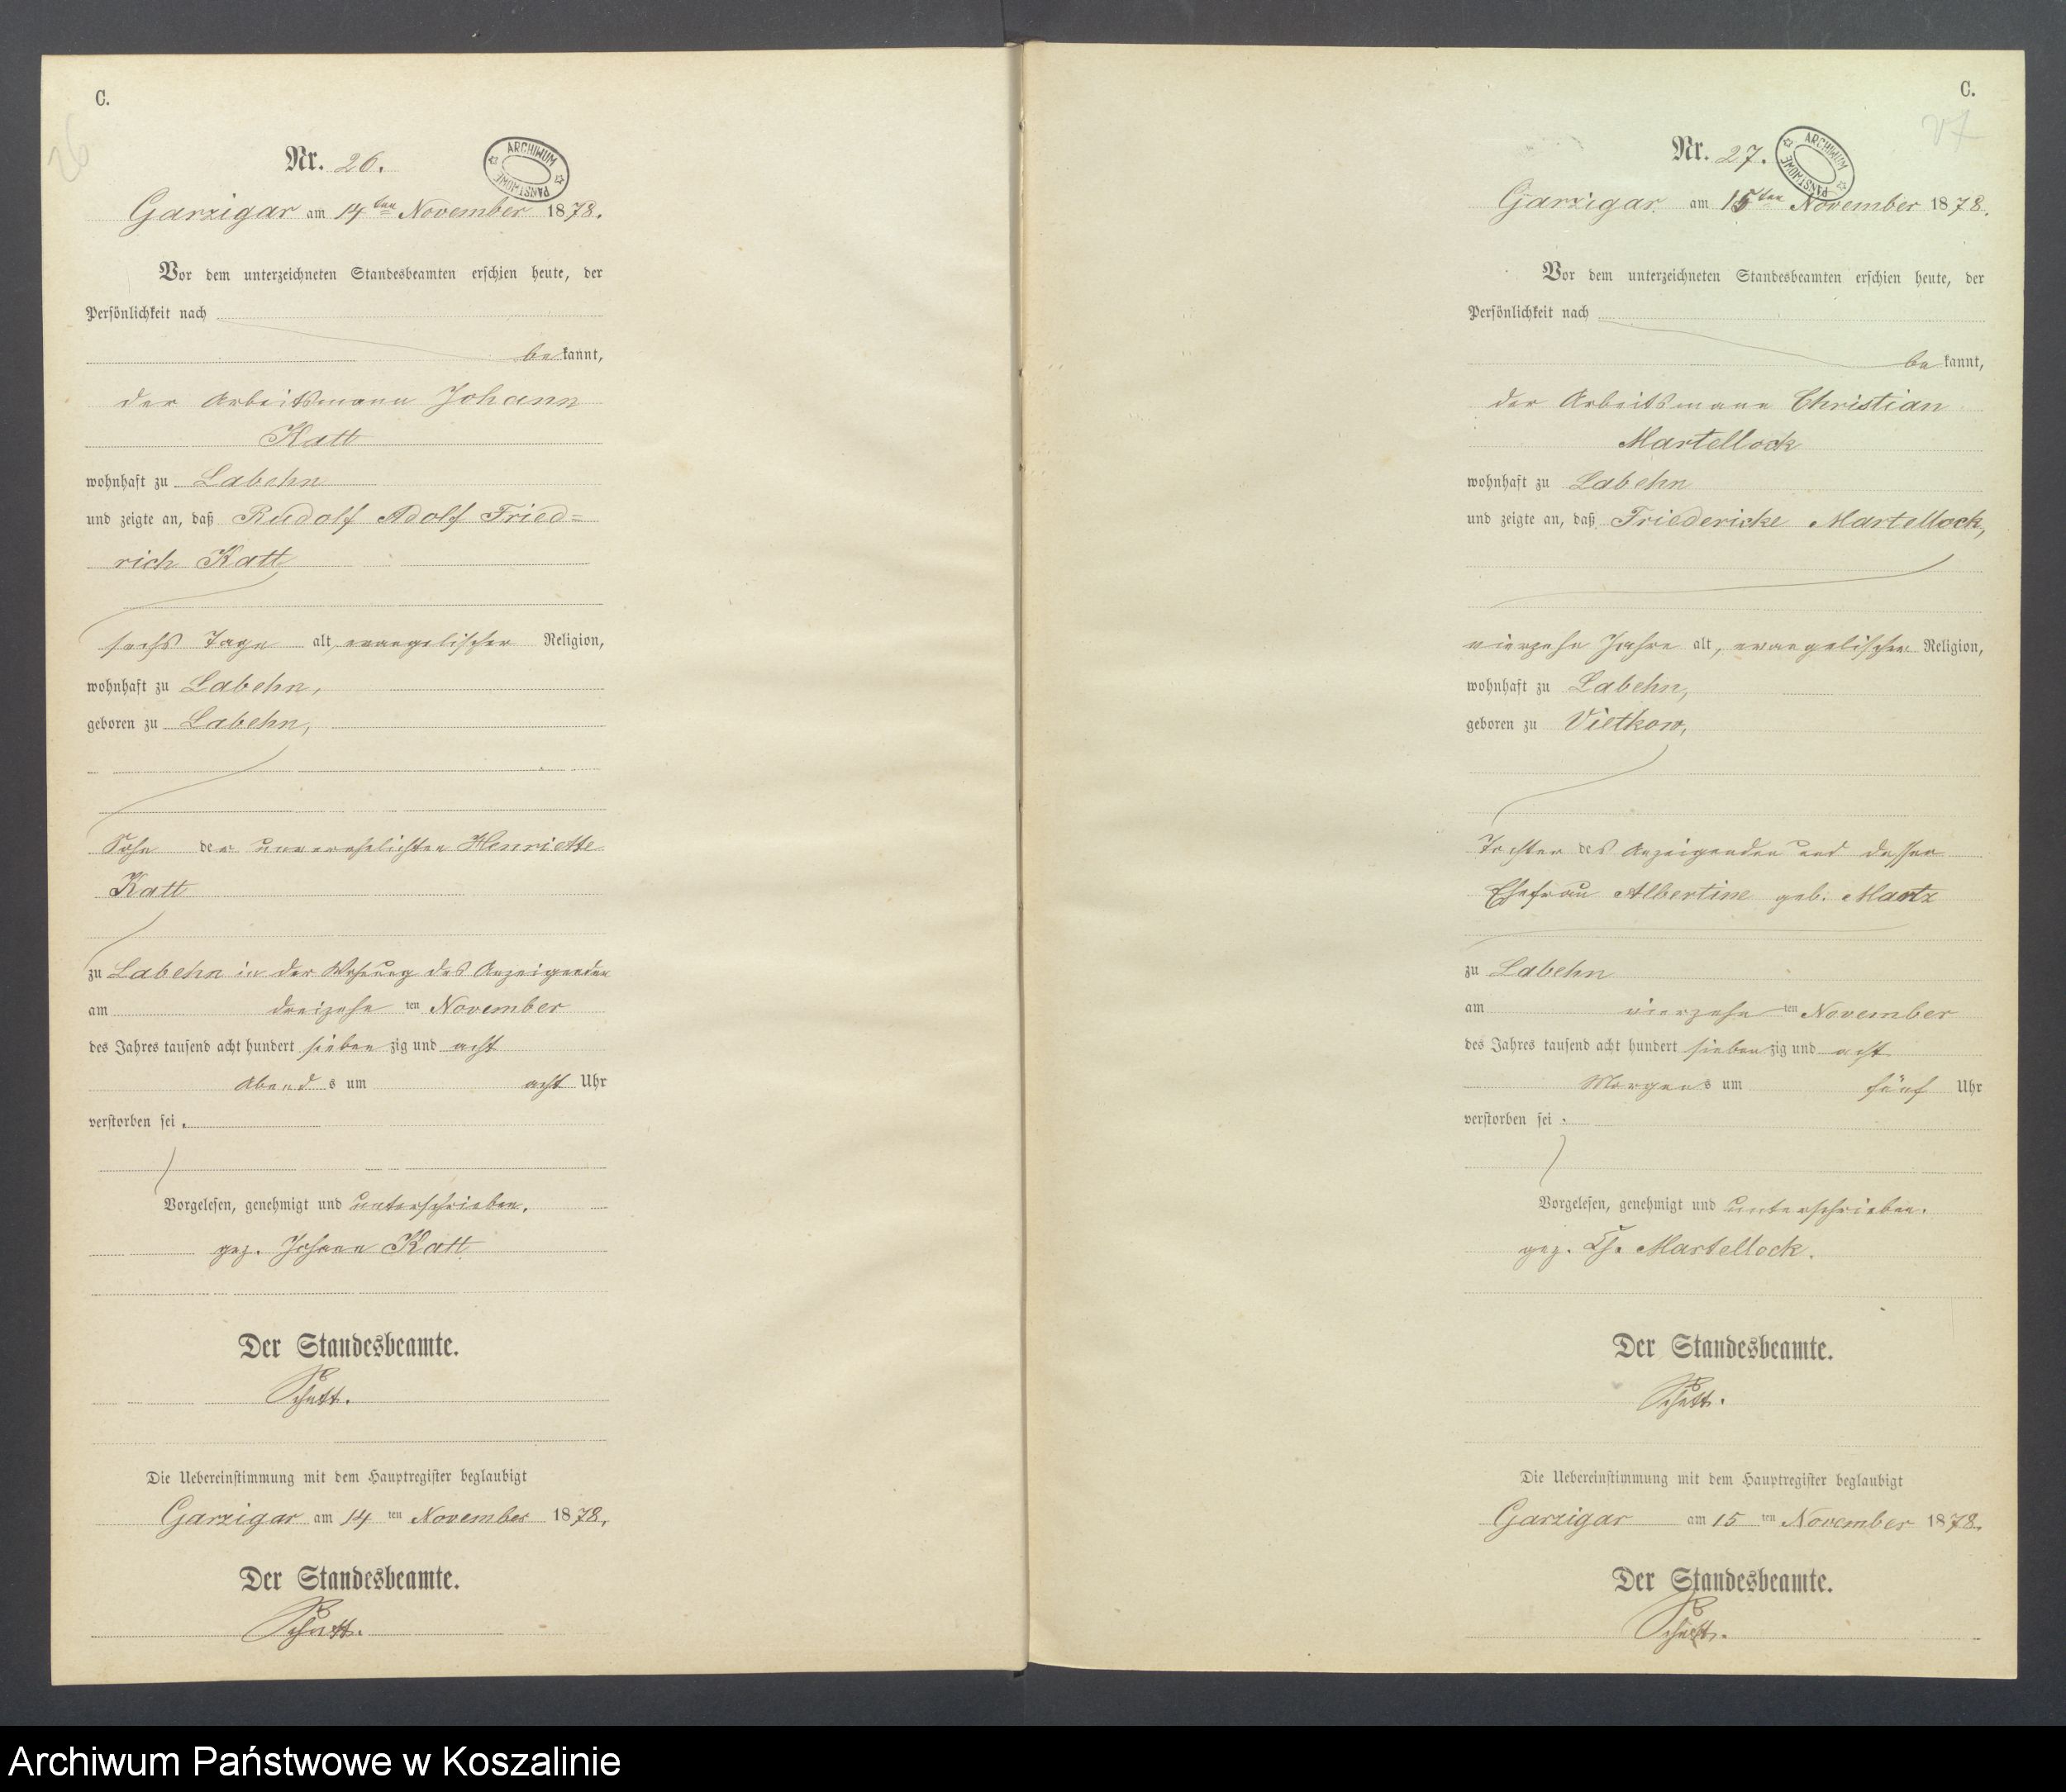 C.
26
Nr. 26.
ARCHIWUM PAŃSTWOWE
Garzigar am 14ten November 1878.
Vor dem unterzeichneten Standesbeamten erschien heute, der
Persönlichkeit nach
bekannt,
der Arbeitsmann Johann
Katt
wohnhaft zu Labehn
und zeigte an, daß Rudolf Adolf Fried=
rich Katt
sechs Tage alt, evangelischer Religion,
wohnhaft zu Labehn,
geboren zu Labehn,
Sohn der unverehelichten Henriette
Katt
zu Labehn in der Wohnung des Anzeigenden
am dreizehn ten November
des Jahres tausend acht hundert sieben zig und acht
Abend s um acht Uhr
verstorben sei.
Vorgelesen, genehmigt und unterschrieben.
gez. Johann Katt
Der Standesbeamte.
Die Uebereinstimmung mit dem Hauptregister beglaubigt
Garzigar am 14 ten November 1878.
Der Standesbeamte.
C.
27
Nr. 27.
ARCHIWUM PAŃSTWOWE
Garzigar am 15ten November 1878.
Vor dem unterzeichneten Standesbeamten erschien heute, der
Persönlichkeit nach
bekannt,
der Arbeitsmann Christian
Martellock
wohnhaft zu Labehn
und zeigte an, daß Friedericke Martellock,
vierzehn Jahre alt, evangelischer Religion,
wohnhaft zu Labehn,
geboren zu Vietkow,
Tochter des Anzeigenden und dessen
Ehefrau Albertine geb. Mantz
zu Labehn
am vierzehn ten November
des Jahres tausend acht hundert sieben zig und acht
Morgens um fünf Uhr
verstorben sei.
Vorgelesen, genehmigt und unterschrieben.
gez. Ch. Martellock.
Der Standesbeamte.
Die Uebereinstimmung mit dem Hauptregister beglaubigt
Garzigar am 15 ten November 1878.
Der Standesbeamte.
Archiwum Państwowe w Koszalinie